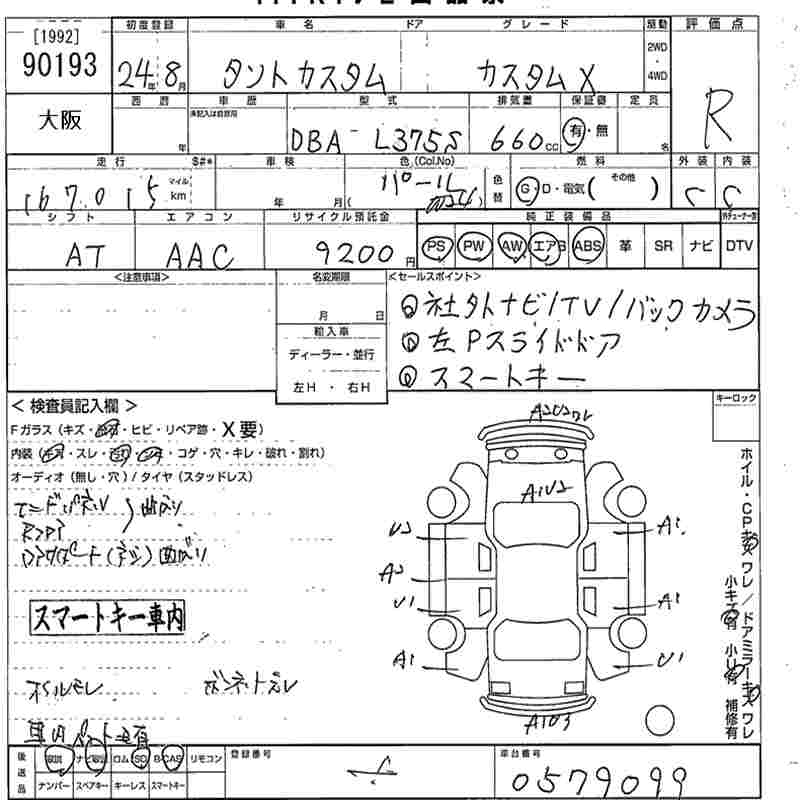 [1992]
90193
初度登録 車名 ドア グレード 駆動 評価点
24年8月 タントカスタム カスタムX 2WD・4WD R
大阪
西暦 車歴 型式 排気量 保証書 定員
未記入は自家用
年 DBA- L375S 660cc 有・無 名
走行 S#* 車検 色(Col.No) 燃料 外装 内装
マイル km 年 月( パール 色替 G・D・電気( その他 ) C C
シフト エアコン リサイクル預託金 純正装備品
AT AAC 9200円 PS PW AW エアB ABS 革 SR ナビ DTV
<注意事項> 名変期限 <セールスポイント>
月 日
◎社外ナビ/TV/バックカメラ
輸入車
ディーラー・並行
◎左Pスライドドア
左H ・ 右H
◎スマートキー
<検査員記入欄> キーロック
Fガラス(キズ・・ヒビ・リペア跡・X要)
内装(・スレ・・・コゲ・穴・キレ・破れ・割れ)
オーディオ(無し・穴)/タイヤ(スタッドレス)
曲がり
曲がり
スマートキー車内
オイルモレ
A1U2
U2 A1
A2
U1 A1
A1 U1
ホイル・CP ワレ/ドアミラー ワレ
小キズ有 小U有 補修有
後送品 取説 ナビ取説 ロム SD B-CAS リモコン
ナンバー スペアキー キーレス スマートキー
登録番号 車台番号
0579099